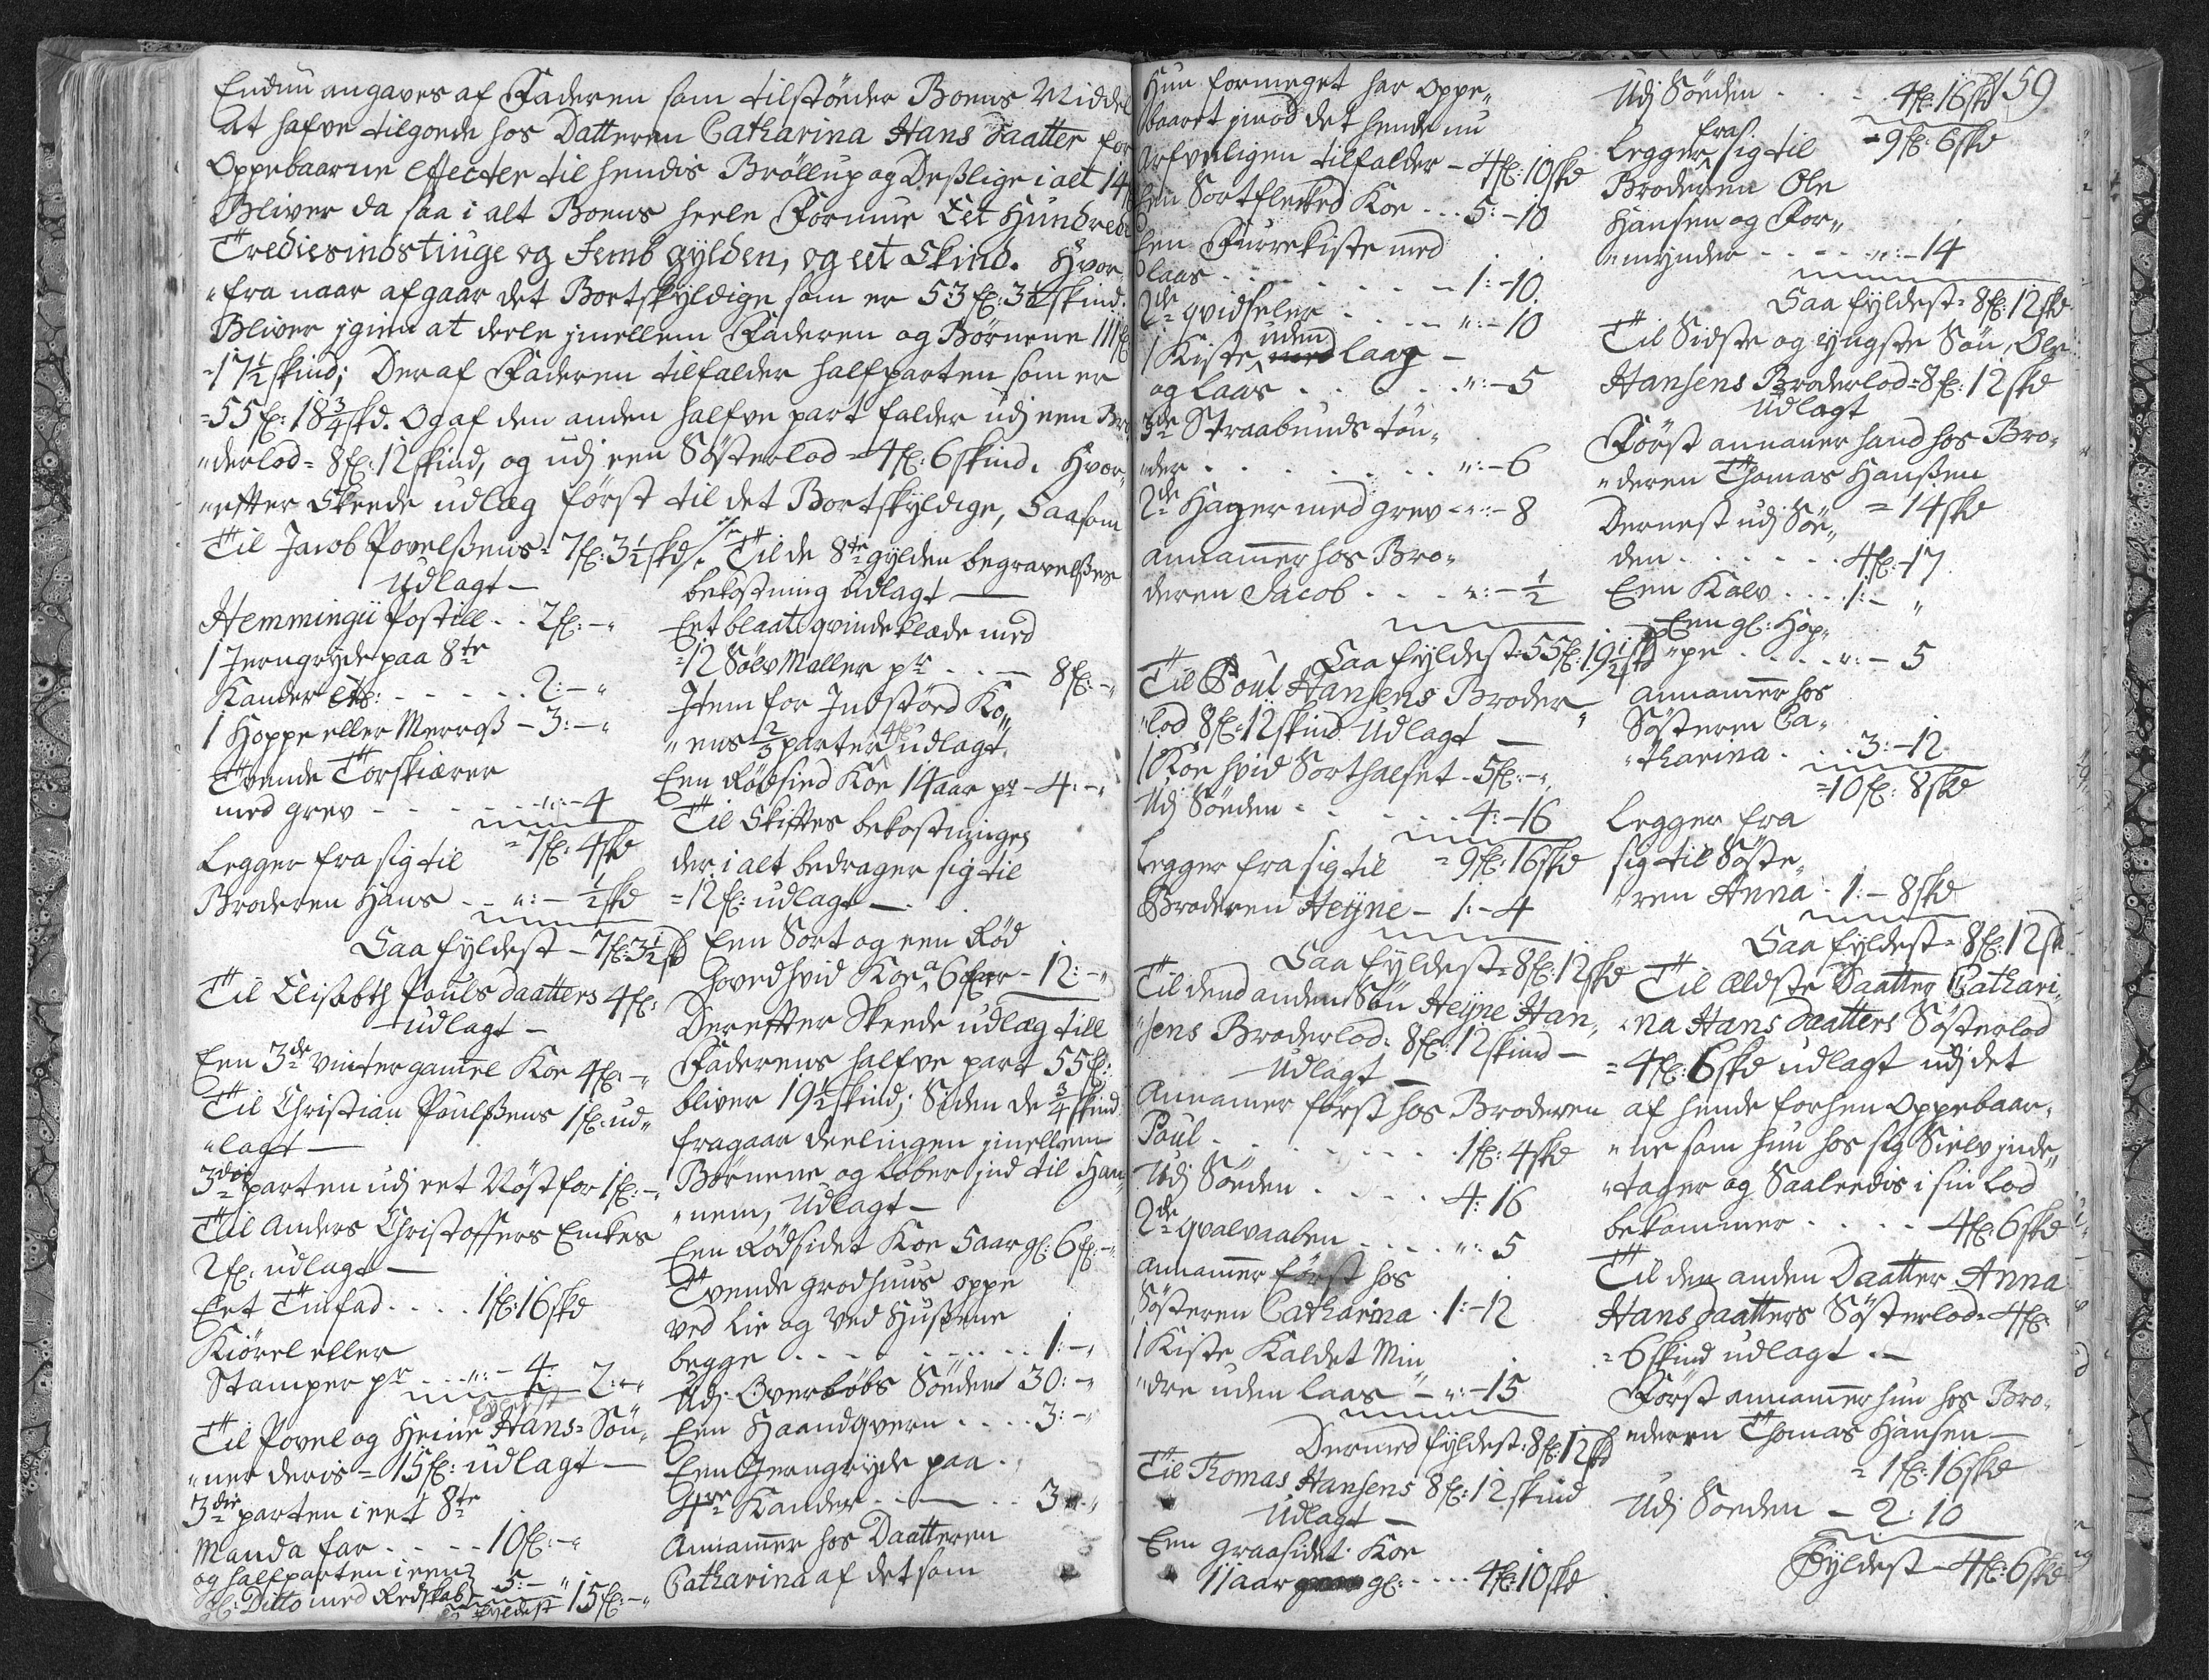 Endnu angaves af Faderen som tilstönder Boens Middel
At hafve tilgoede hos Datteren Catharina Hans Daatter for
Oppebaarne Effecter til hendis Bröllup og Deßlige i alt 14
Bliver da saa i alt Boens heele Formue Eet Hundrede
Trediesindstiuge og Femb gylden, og eet Skind. Hvor„
„fra naar afgaar det Bortskyldige som er 53 fl: 3½ skind.
Bliver igien at deele imellem Faderen og Börnene 111 fl
=17½ skind; Deraf Faderen tilfalder halfparten som er
=55 fl: 18¾ skd. Og af den anden halfve part falder udj een Bro
„derlod = 8 fl: 12 skind, og udj een Sösterlod = 4 fl: 6 skind. Hvor„
„efter Skeede udlæg först til det Bortskyldige, Saasom
Til Jacob Povelßens = 7 fl: 3½ skd
Udlagt —
Hemmingii Postill . . 2 fl: – „
1 Jerngryde paa 8te
Kander Ets: . . . . . 2: – „
1 Hoppe eller Merroß – 3: – „
Tvende Torskiærer
med grev . . . . . „: – 4
= 7 fl: 4 skd
Legger fra sig til
Broderen Hans . . „: – ½ skd
Saa fyldest – 7 fl: 3½ skd
Til Elisabth Pouls daatters 4 fl:
udlagt –
Een 3de vinter gamel Koe 4 fl: – „
Til Christian Poulßens 1 fl: ud„
„lagt —
3die parten udj eet Nöst for 1 fl: – „
Til Anders Christoffers Enkes
2 fl: udlagt —
Eet Tinfad . . . . 1 fl: 16 skd
Kiörel eller
Stamper pr . . . „: – 4 2: – „
fyldest
Til Povel og Heine Hans = Sön„
„ner deris = 15 fl: udlagt —
3die parten i eet 8te
Manda far . . . . 10 fl: – „
og halfparten i een
gl: Ditto med Redskab 5: – „ 15 fl: – „
fyldest
Til de 8te gylden begravelßes
bekostning udlagt —
Eet blaat qvindeklæde med
=12 Sölv Maller pr . . — 8 fl: – „
Item for Indstörd Ko„
„ens ⅔ parter 4 fl udlagt
Een Rödsied Koe 14 aar pr – 4: – „
Til Skiftes bekostninges
der i alt bedrager sig til
= 12 fl: udlagt — .
Een Sort og een Rød
hovedhvid Koe a 6 fl er – 12: – „
Derefter Skeede udlæg till
Faderens halfve part 55 fl:
bliver 19½ skind; Siden de ¾ skind
fragaar deelingen imellem
Börnene og löber ind til Han„
„nem, Udlagt —
Een Rödsidet Koe 5 aar gl: 6 fl: – „
Tvende grodhuus oppe
ved Lie og ved Hußene
begge . . . . . . . . 1: – „
Udj Overböbs Sönden 30: – „
Een Haandqvern . . . . 3: – „
Een Jerngryde paa
4re Kander . . — . . 3: – „
Annamer hos Daatteren
Catharina af det som
Hun formeget har oppe„
baaret imod det hende nu
Arfveligen tilfalder – 4 fl: 10 skd
Een Sortflecked Koe . . . 5: – 10
Een Furrekiste med
laas . . . . . . . . 1: – 10
2de qvidseler . . . . . „: – 10
1 Kiste uden laag –
og laas . . . . . . „: – 5
3de Straabunds tön„
„der . . . . . . . . „: – 6
2de Hager med grev – „: – 8
annamer hos Bro„
deren Jacob . . . . „: – ½
Saa fyldest = 55 fl: 19½ skd
Til Poul Hansens Broder„
„lod 8 fl: 12 skind Udlagt —
1 Koe hvid Sorthalset – 5 fl: – „
Udj Sönden . . . . . 4: – 16
= 9 fl: 16 skd
Legger fra sig til
Broderen Heyne – 1: – 4
Saa fyldest = 8 fl: 12 skd
Til dend anden Sön Heyne Han„
„sens Broderlod = 8 fl: 12 skind —
Udlagt —
Annamer först hos Broderen
Poul . . . . . . . . 1 fl: 4 skd
Udj Sönden . . . . . 4: 16
2de qvalvaaben . . . . „: 5
annamer först hos
Sösteren Catharina . 1: – 12
1 Kiste Kaldet Min„
„dre uden laas – „: – 15
Dermed fyldest = 8 fl: 12 skd
Til Thomas Hansens 8 fl: 12 skind
Udlagt —
Een graasidet Koe
11 aar gl: . . . . 4 fl: 10 skd
159
Udj Sönden . . . . 4 fl: 16 skd
= 9 fl: 6 skd
Legger fra sig til
Broderen Ole
Hansen og For„
„mynder . . . . „: – 14
Saa fyldest = 8 fl: 12 skd
Til Sidste og Yngste Sön, Ole
Hansens Broderlod = 8 fl: 12 skd
Udlagt
Först annamer hand hos Bro„
„deren Thomas Hanßen
= 14 skd
Dernest udj Sön„
den . . . . . . 4 fl: – 17
Een Kalv . . . 1: – „
Een gl: Hop„
„pe . . . . . „: – 5
annamer hos
Sösteren Ca„
„tharina . . . 3: – 12
= 10 fl: 8 skd
Legger fra
sig til Söste„
„ren Anna . 1: – 8 skd
Saa fyldest = 8 fl: 12 sk
Til Eldste Daatter Cathari„
„na Hans daatters Sösterlod
= 4 fl: 6 skd udlagt udj det
af hende forhen Oppebaar„
„ne som hun hos sig Sielv inde„
„tager og Saaleedis i sin Lod
bekommer . . . . . 4 fl: 6 skd
Til den anden Daatter Anna
Hans daatters Sösterlod = 4 fl
= 6 skind udlagt . —
Först annamer hun hos Bro„
„deren Thomas Hansen —
= 1 fl: 16 skd
Udj Sonden – 2: 10
Fyldest – 4 fl: 6 skd